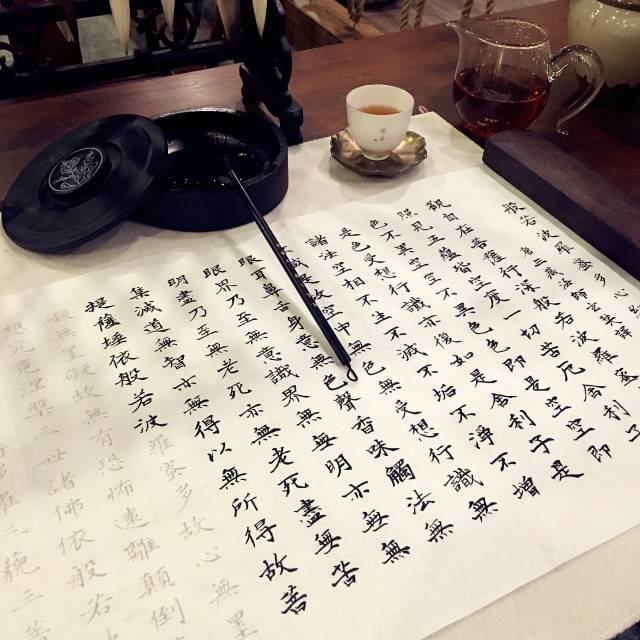 般若波羅蜜多心
唐三藏法師玄奘譯
觀自在菩薩行深般若波羅蜜
照見五蘊皆空度一切苦厄舍利子
色不異空空不異色色即是空空即
是色受想行識亦復如是舍利子是
諸法空相不生不滅不垢不淨不增
減是故空中無色無受想行識無
眼耳鼻舌身意無色聲香味觸法無
眼界乃至無意識界無無明亦無無
明盡乃至無老死亦無老死盡無苦
集滅道無智亦無得以無所得故菩
提薩埵依般若波羅蜜多故心無罣
礙無罣礙故無有恐怖遠離顛倒
想究竟涅槃三世諸佛依般若波
三藐三菩